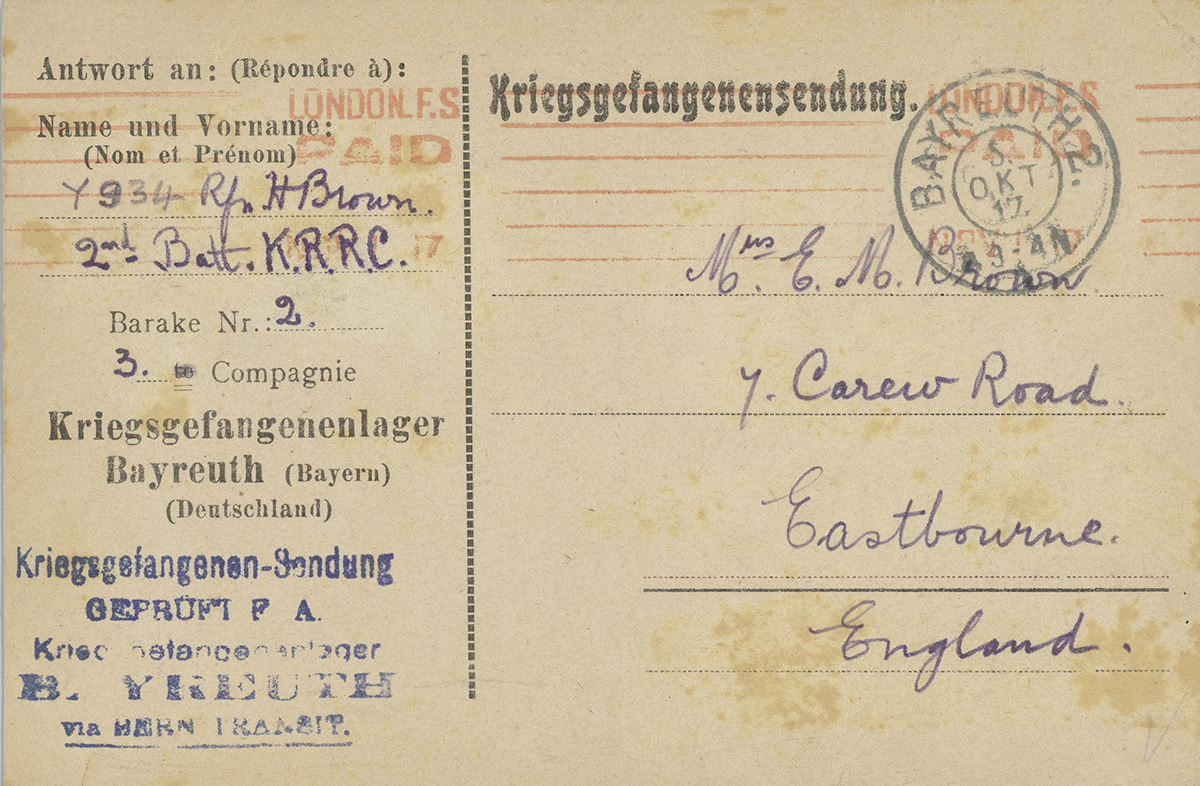 Antwort an: (Répondre à):
LONDON. F.S
PAID
Name und Vorname:
(Nom et Prénom)
Y 934 Rfn H Brown.
2nd Batt. K.R.R.C.
17
Barake Nr.: 2.
3. te Compagnie
Kriegsgefangenenlager
Bayreuth (Bayern)
(Deutschland)
Kriegsgefangenen-Sendung
GEPRÜFT F A.
Kriegsgefangenenlager
BAYREUTH
via BERN TRANSIT.
Kriegsgefangenensendung.
LONDON. F.S
PAID
BAYREUTH 2.
5.
OKT
17
Mrs. E. M. Brown
7. Carew Road.
Eastbourne.
England.